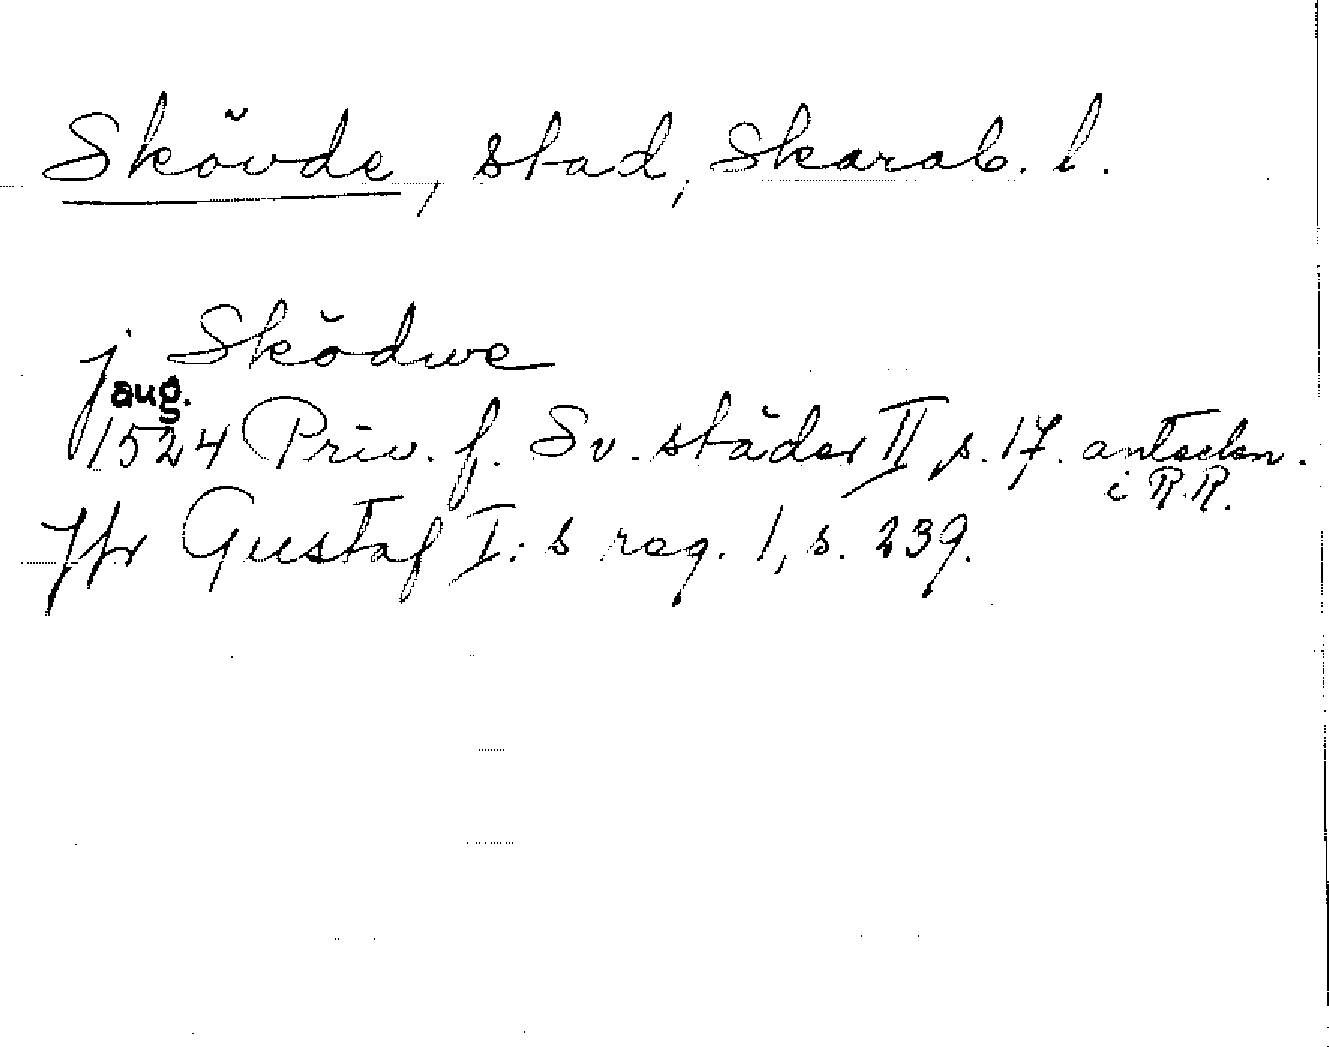 Skövde, stad, Skarab. l.
j Sködwe
aug.
1524 Priv. f. Sv. städer II, s. 17. anteckn.
i R.R.
Jfr Gustaf I:s reg. 1, s. 239.